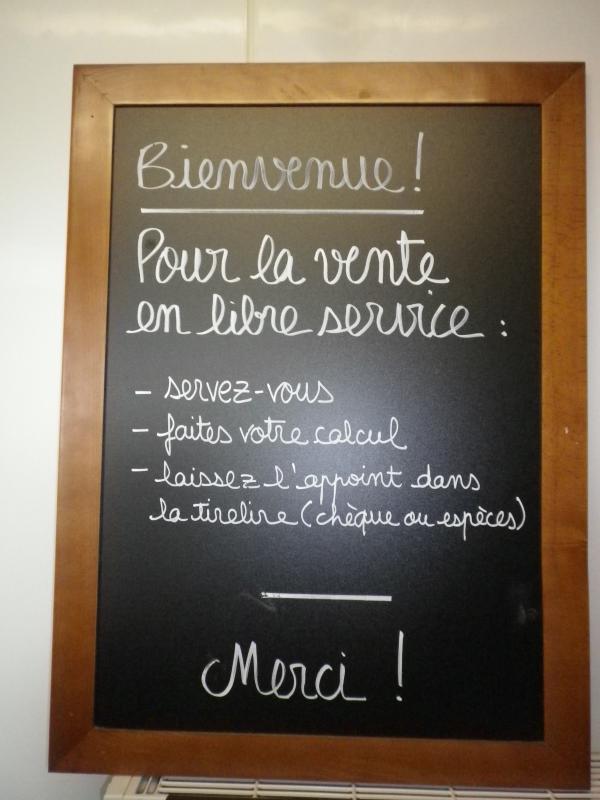 Bienvenue !
Pour la vente
en libre service :
- servez-vous
- faites votre calcul
- laissez l'appoint dans
la tirelire (chèque ou espèces)
Merci !